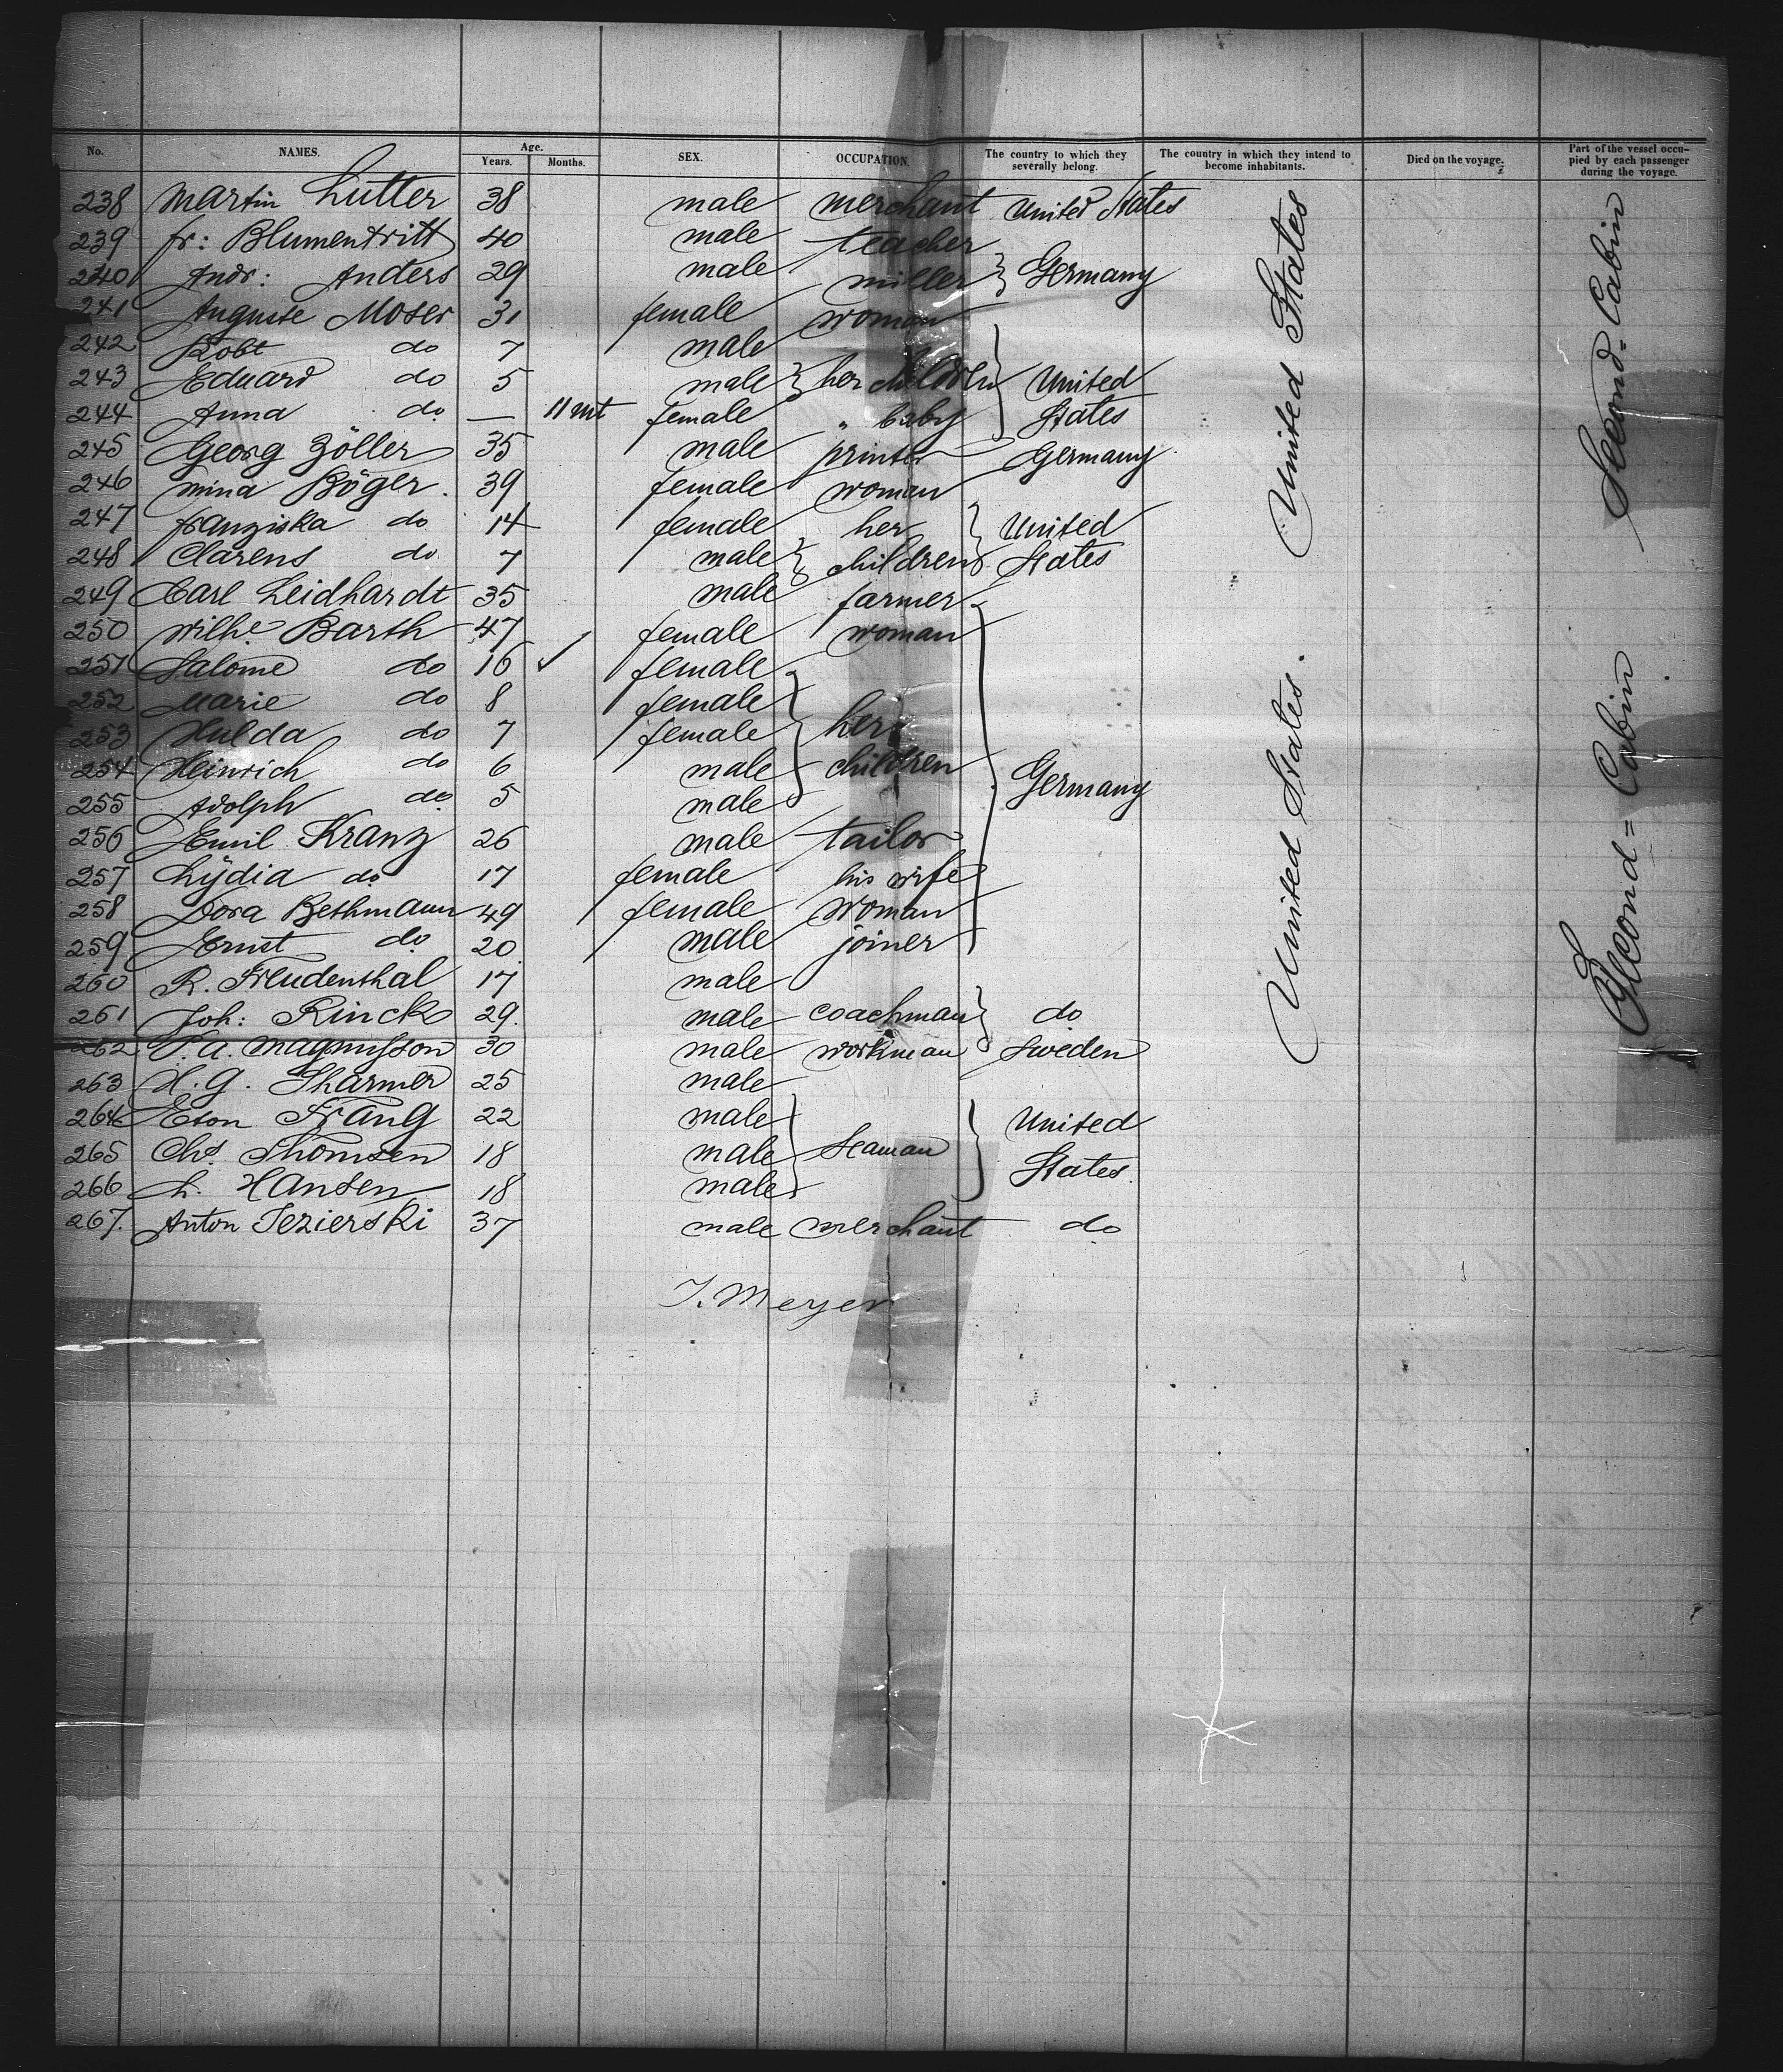 No. NAMES. Age. Years. Months. SEX. OCCUPATION. The country to which they severally belong. The country in which they intend to become inhabitants. Died on the voyage. Part of the vessel occupied by each passenger during the voyage.
238 Martin Lutter 38 male merchant United States
239 fr: Blumentritt 40 male teacher
240 Andr: Anders 29 male miller } Germany
241 Auguste Moser 31 female woman
242 Robt do 7 male
243 Eduard do 5 male } her children } United
244 Anna do — 11 mt female " baby States
245 Georg Zöller 35 male printer Germany
246 Mina Böger 39 female woman
247 Franziska do 14 female her } United
248 Clarens do 7 male } children States
249 Carl Leidhardt 35 male farmer
250 Wilhe Barth 47 female woman
251 Salome do 16 ✓ female
252 Marie do 8 female
253 Hulda do 7 female } her
254 Heinrich do 6 male children } Germany
255 Adolph do 5 male
256 Emil Kranz 26 male tailor
257 Lydia do 17 female his wife
258 Dora Bethmann 49 female woman
259 Ernst do 20 male joiner
260 R. Freudenthal 17 male
261 Joh: Rinck 29. male coachman } do
262 P. A. Magnusson 30 male workman Sweden
263 H. G. Tharmer 25 male
264 Eton Frang 22 male United
265 Chs. Thomsen 18 male } Seaman } States.
266 L. Hansen 18 male
267. Anton Jezierski 37 male merchant do
J. Meyer
United States
United States.
Second-Cabin
Second=Cabin